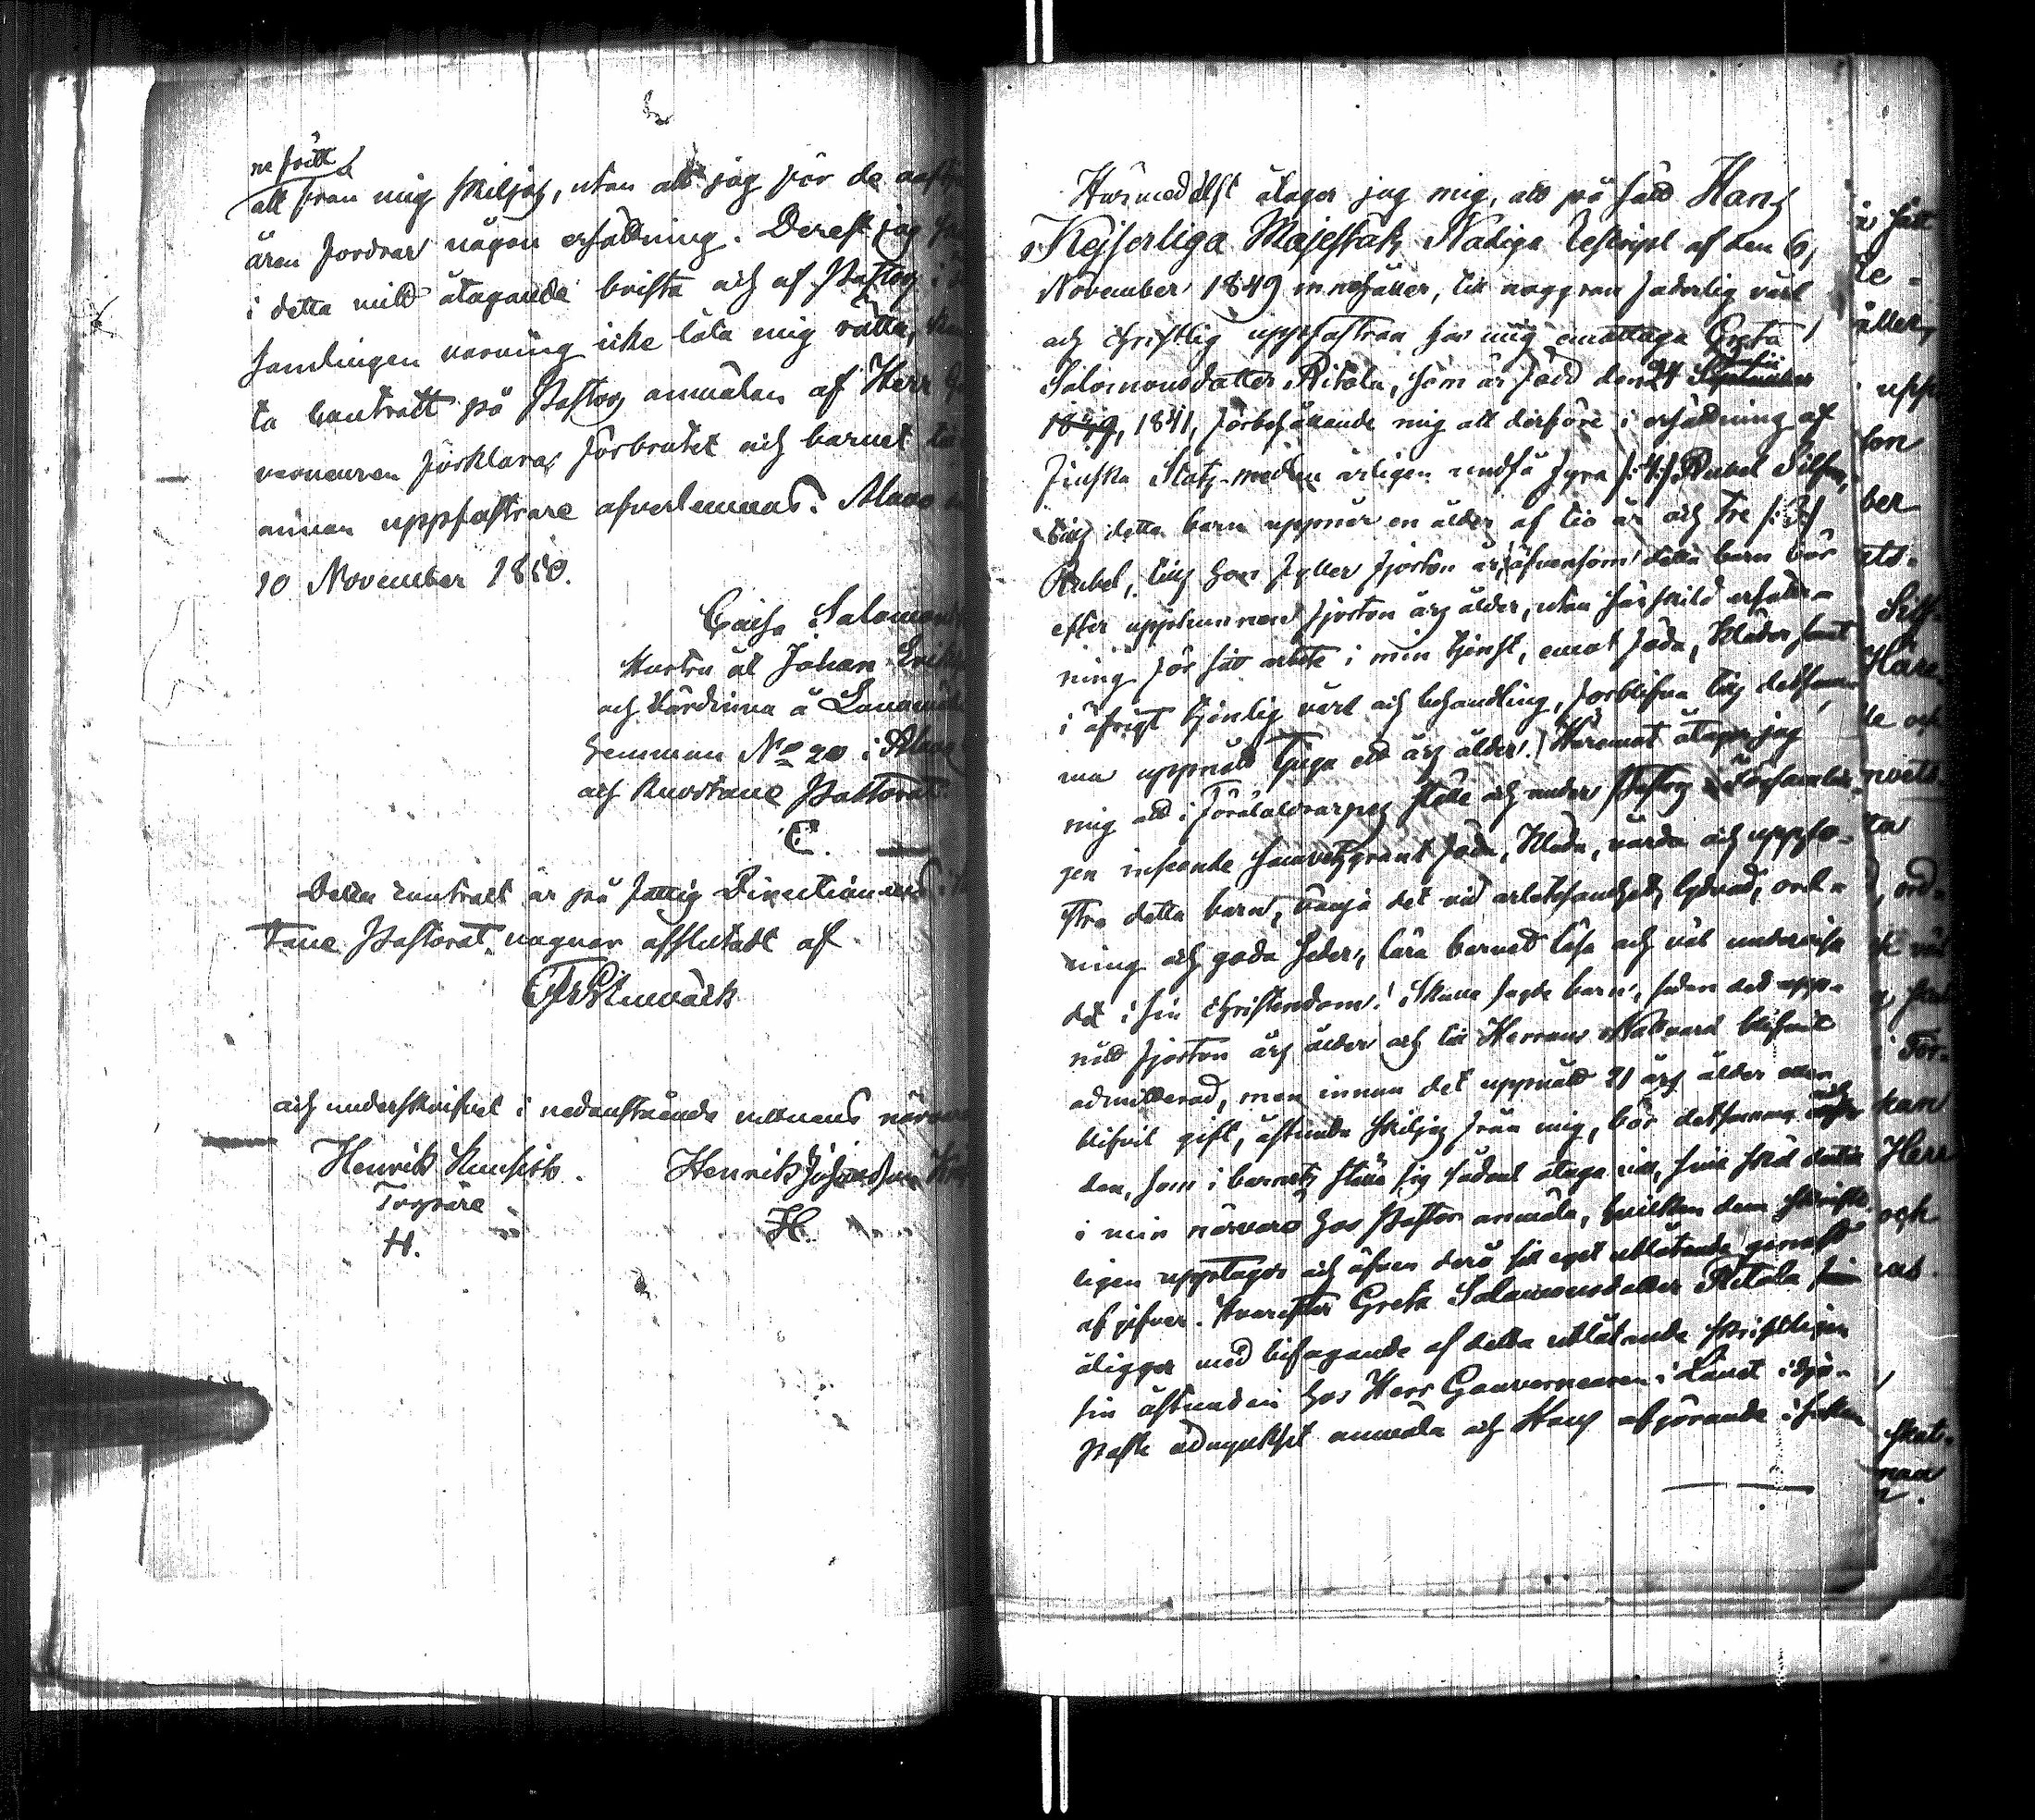 ne fritt
att från mig skiljas, utan att jag för de
åren fordrar någon ersättning. Derest jag
i detta mitt åtagande brista och af Pastors i
samlingen varning icke låta mig rätta,
ta Contract på Pastors anmälan af Herr
verneuren förklaras förbrutet och barnet
annan uppfostrare öfverlemnas. Alavo
10 November 1850.
Caisa Salomons
Hustru åt Johan
och Värdinna å
hemman No 20 i Alavo
och Kuortane Pastorat.
C.
Detta contract är på fattig Directionens i
tane Pastorat vagnar afslutadt af
och underskrifvet i nedanstående vittnens närvaro
Henrik
Torpare
H.
Henrik Johansson
H.
Härmedelst åtager jag mig, att på sätt Hans
Kejserliga Majestäts Nådiga Reskript af den 6
November 1849 innehåller, till noggran faderlig vård
och christlig uppfostran hos mig emottaga Greta
Salomonsdotter Ritola, som är född den 24
1841, förbehållande mig att derföre i ersättning af
Finska Stats-medlen årligen undfå fyra /:4:/ Rubel Silfver,
tills detta barn uppnår en ålder af tio år och Tre /:3:/
Rubel, tills hon fyller fjorton år, äfvensom detta barn bör
efter upphunnen fjorton års ålder, utan särskild ersätt-
ning för sitt arbete i min tjenst, emot föda, kläder samt
i öfrigt tjenlig vård och behandling, förblifva tills detsam-
ma uppnått Tjugu ett års ålder. Häremot åtager jag
mig att i Föräldrars ställe och under Pastors i Församlin-
gen inseende samvetsgrant föda, kläda, vårda och uppfo-
stra detta barn, vänja det vid arbetsamhet, lydnad, ord-
ning och goda seder, lära barnet läsa och väl undervisa
det i sin christendom. Skulle sagde barn, sedan det upp-
nått fjorton års ålder och till Herrans Nattvard blifvit
admitterad, men innan det uppnått 21 års ålder eller
blifvit gift, åstunda skiljas från mig, bör detsamma och
den, som i barnets ställe sig sådant åtaga vill, sina skäl dertill
i min närvaro hos Pastor anmäla, hvilken dem skrift-
ligen upptager och äfven deröfver sitt eget utlåtande genast
afgifver. Hvarefter Greta Salomonsdotter Ritola
åligger med bifogande af detta utlåtande skriftligen
sin åstundan hos Herr Gouverneuren i Länet i dju-
paste ödmjukhet anmäla och Hans afgörande i saken